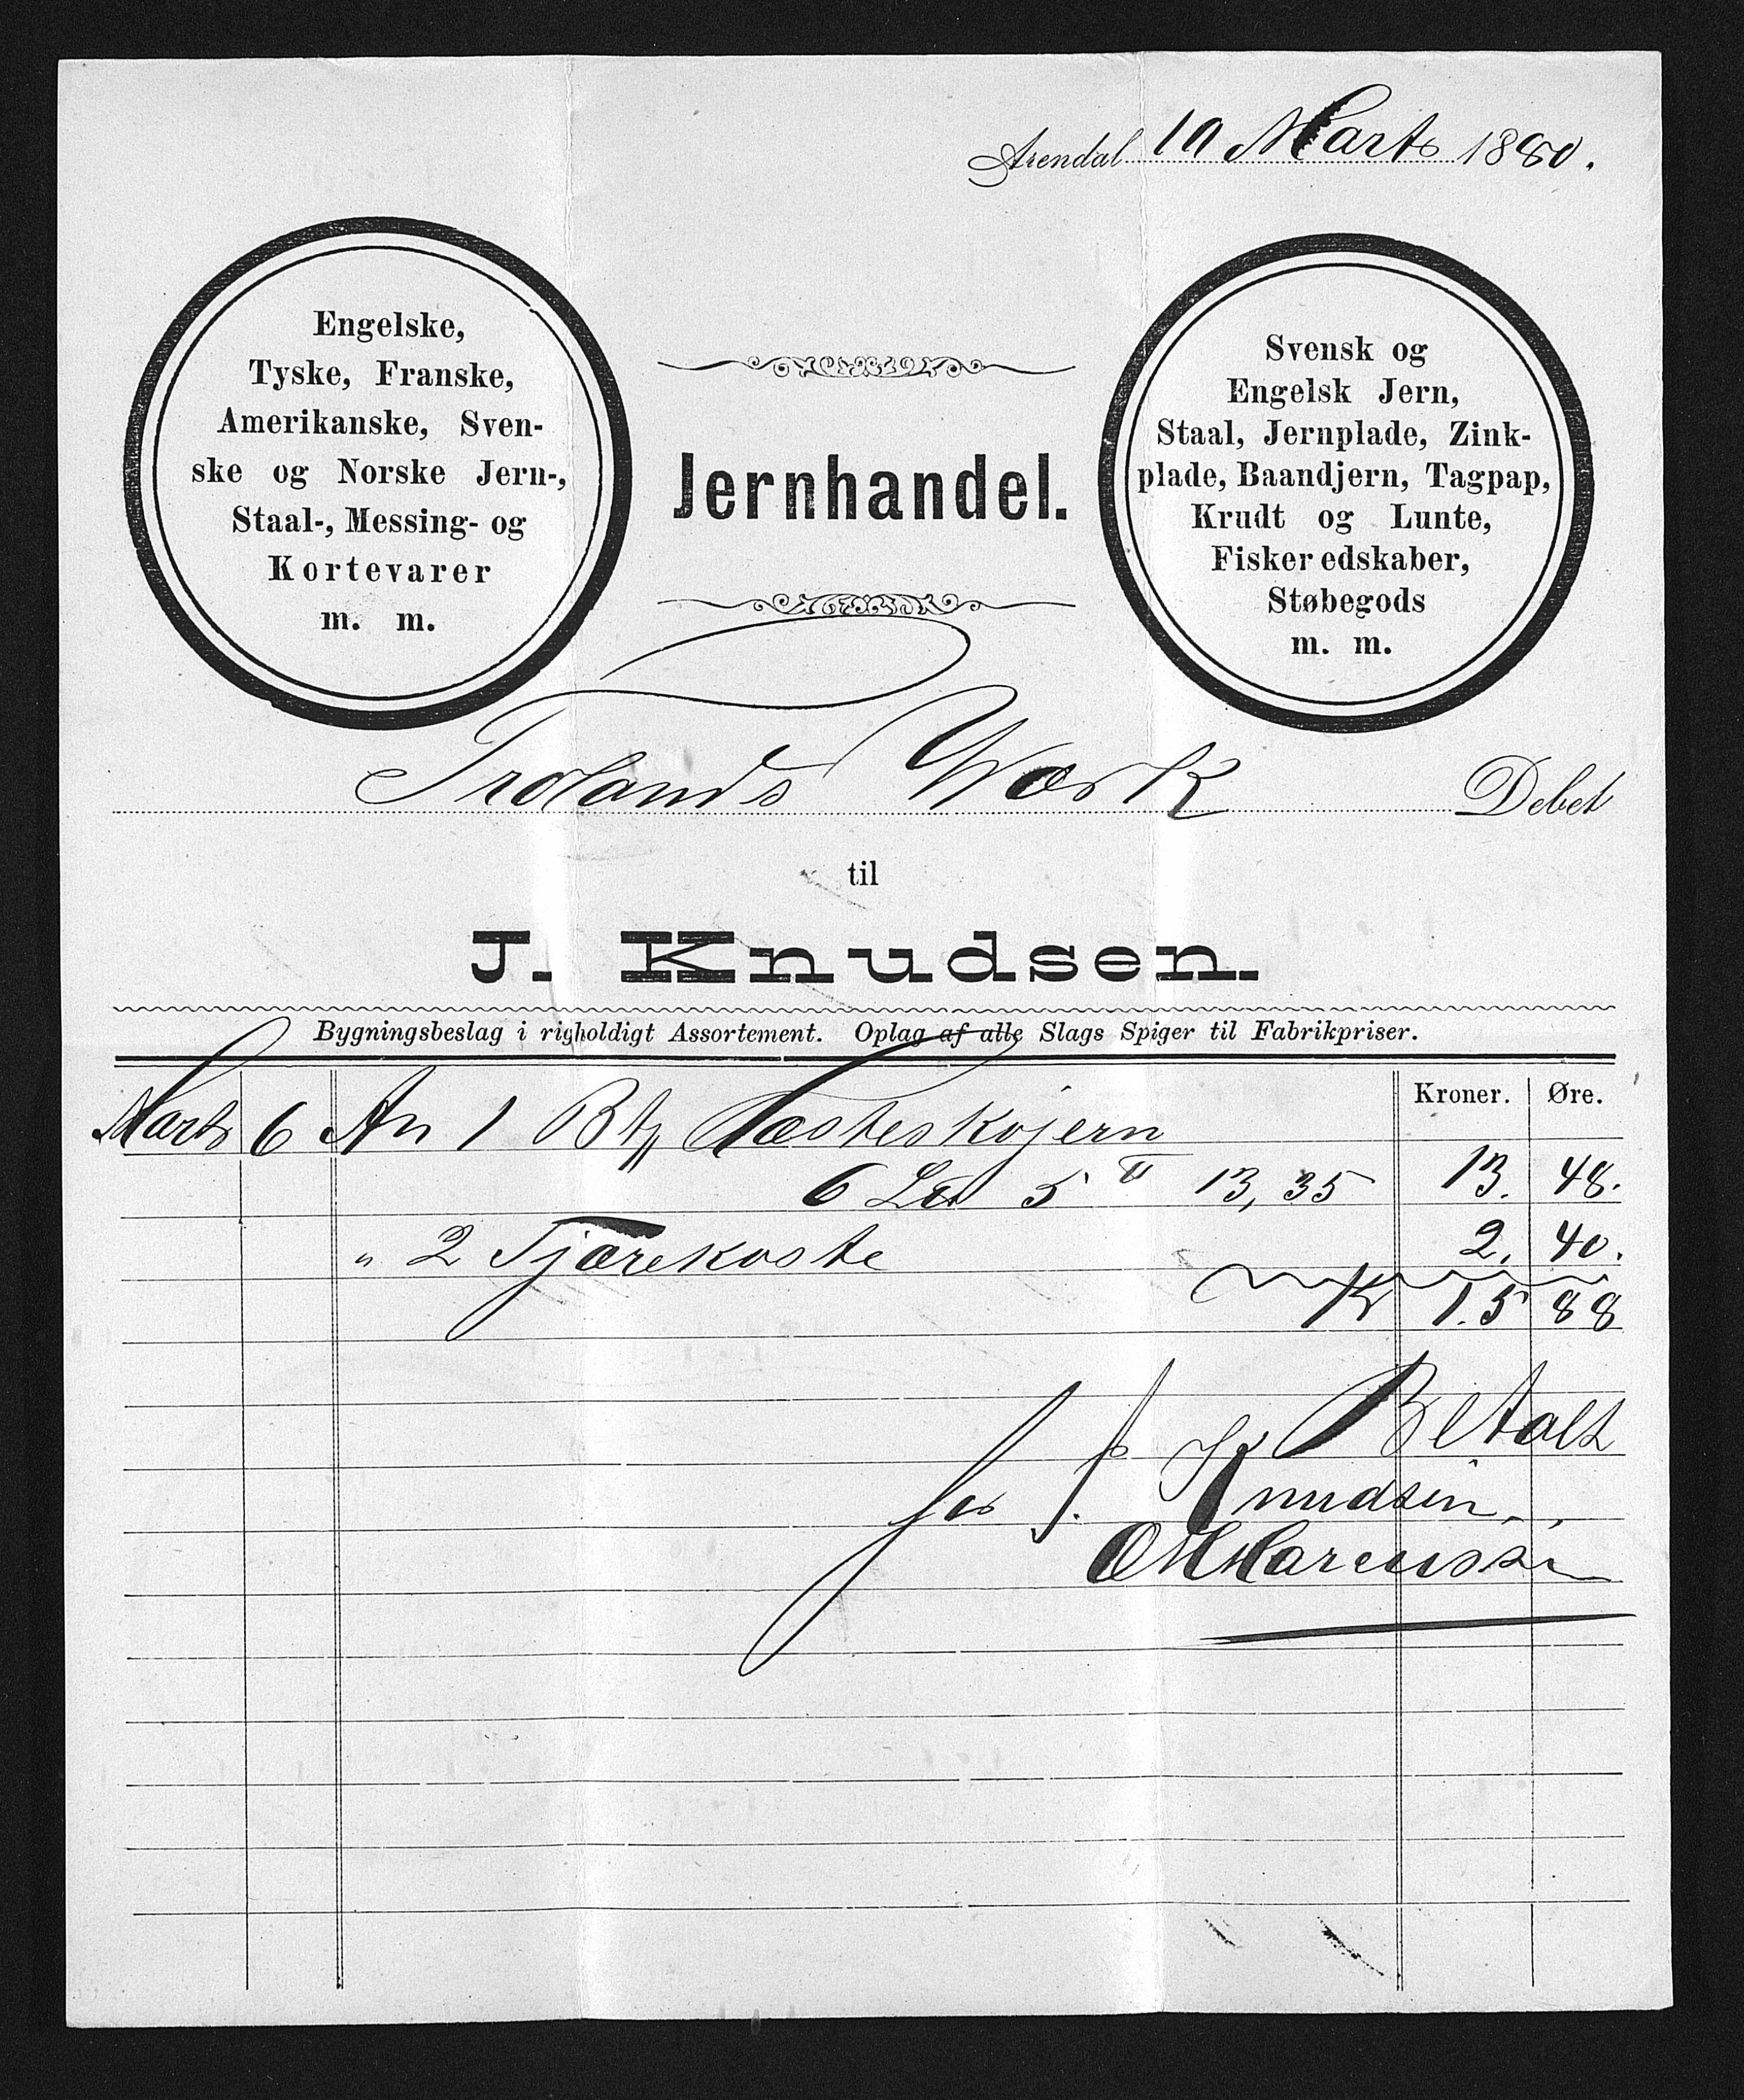 Arendal 10 Marts 1880.
Engelske,
Tyske, Franske,
Amerikanske, Sven-
ske og Norske Jern-,
Staal-, Messing- og
Kortevarer
m. m.
Jernhandel.
Svensk og
Engelsk Jern,
Staal, Jernplade, Zink-
plade, Baandjern, Tagpap,
Krudt og Lunte,
Fiskeredskaber,
Støbegods
m. m.
Frolands Værk Debet
til
J. Knudsen.
Bygningsbeslag i righoldigt Assortement. Oplag af alle Slags Spiger til Fabrikpriser.
Kroner. Øre.
Marts 6 An 1 Bt Hæsteskojern
6 5 13,35 13. 48.
" 2 Tjærekoste 2. 40.
Kr 15 88
Betalt
for J. Knudsen